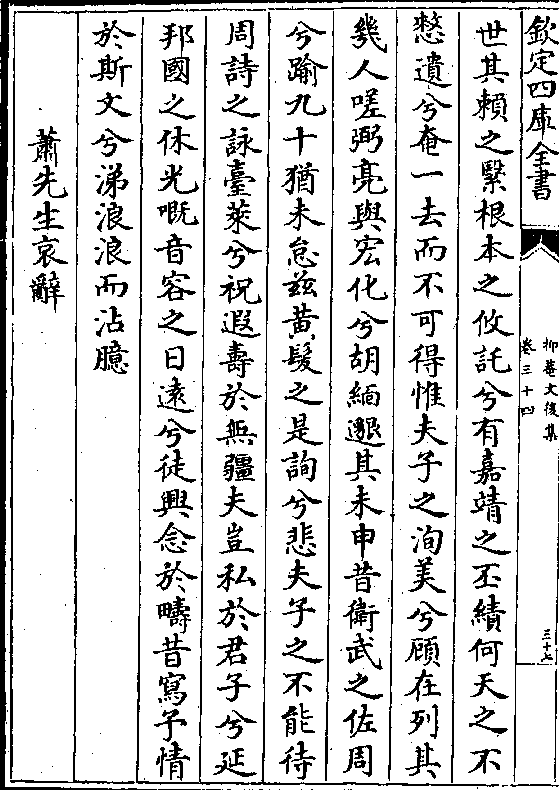 欽定四庫全書
抑菴文後集
卷三十四
三十七
世其賴之緊根本之攸託兮有嘉靖之丕績何天之不
憗遺兮奄一去而不可得惟夫子之洵美兮顧在列其
幾人嗟弼亮與宏化兮胡緬邈其未申昔衛武之佐周
兮踰九十猶未怠玆黄髮之是詢兮悲夫子之不能待
周詩之詠臺萊兮祝遐壽於無疆夫豈私於君子兮延
邦國之休光嘅音容之日遠兮徒興念於疇昔寫予情
於斯文兮涕浪浪而沾臆
蕭先生哀辭